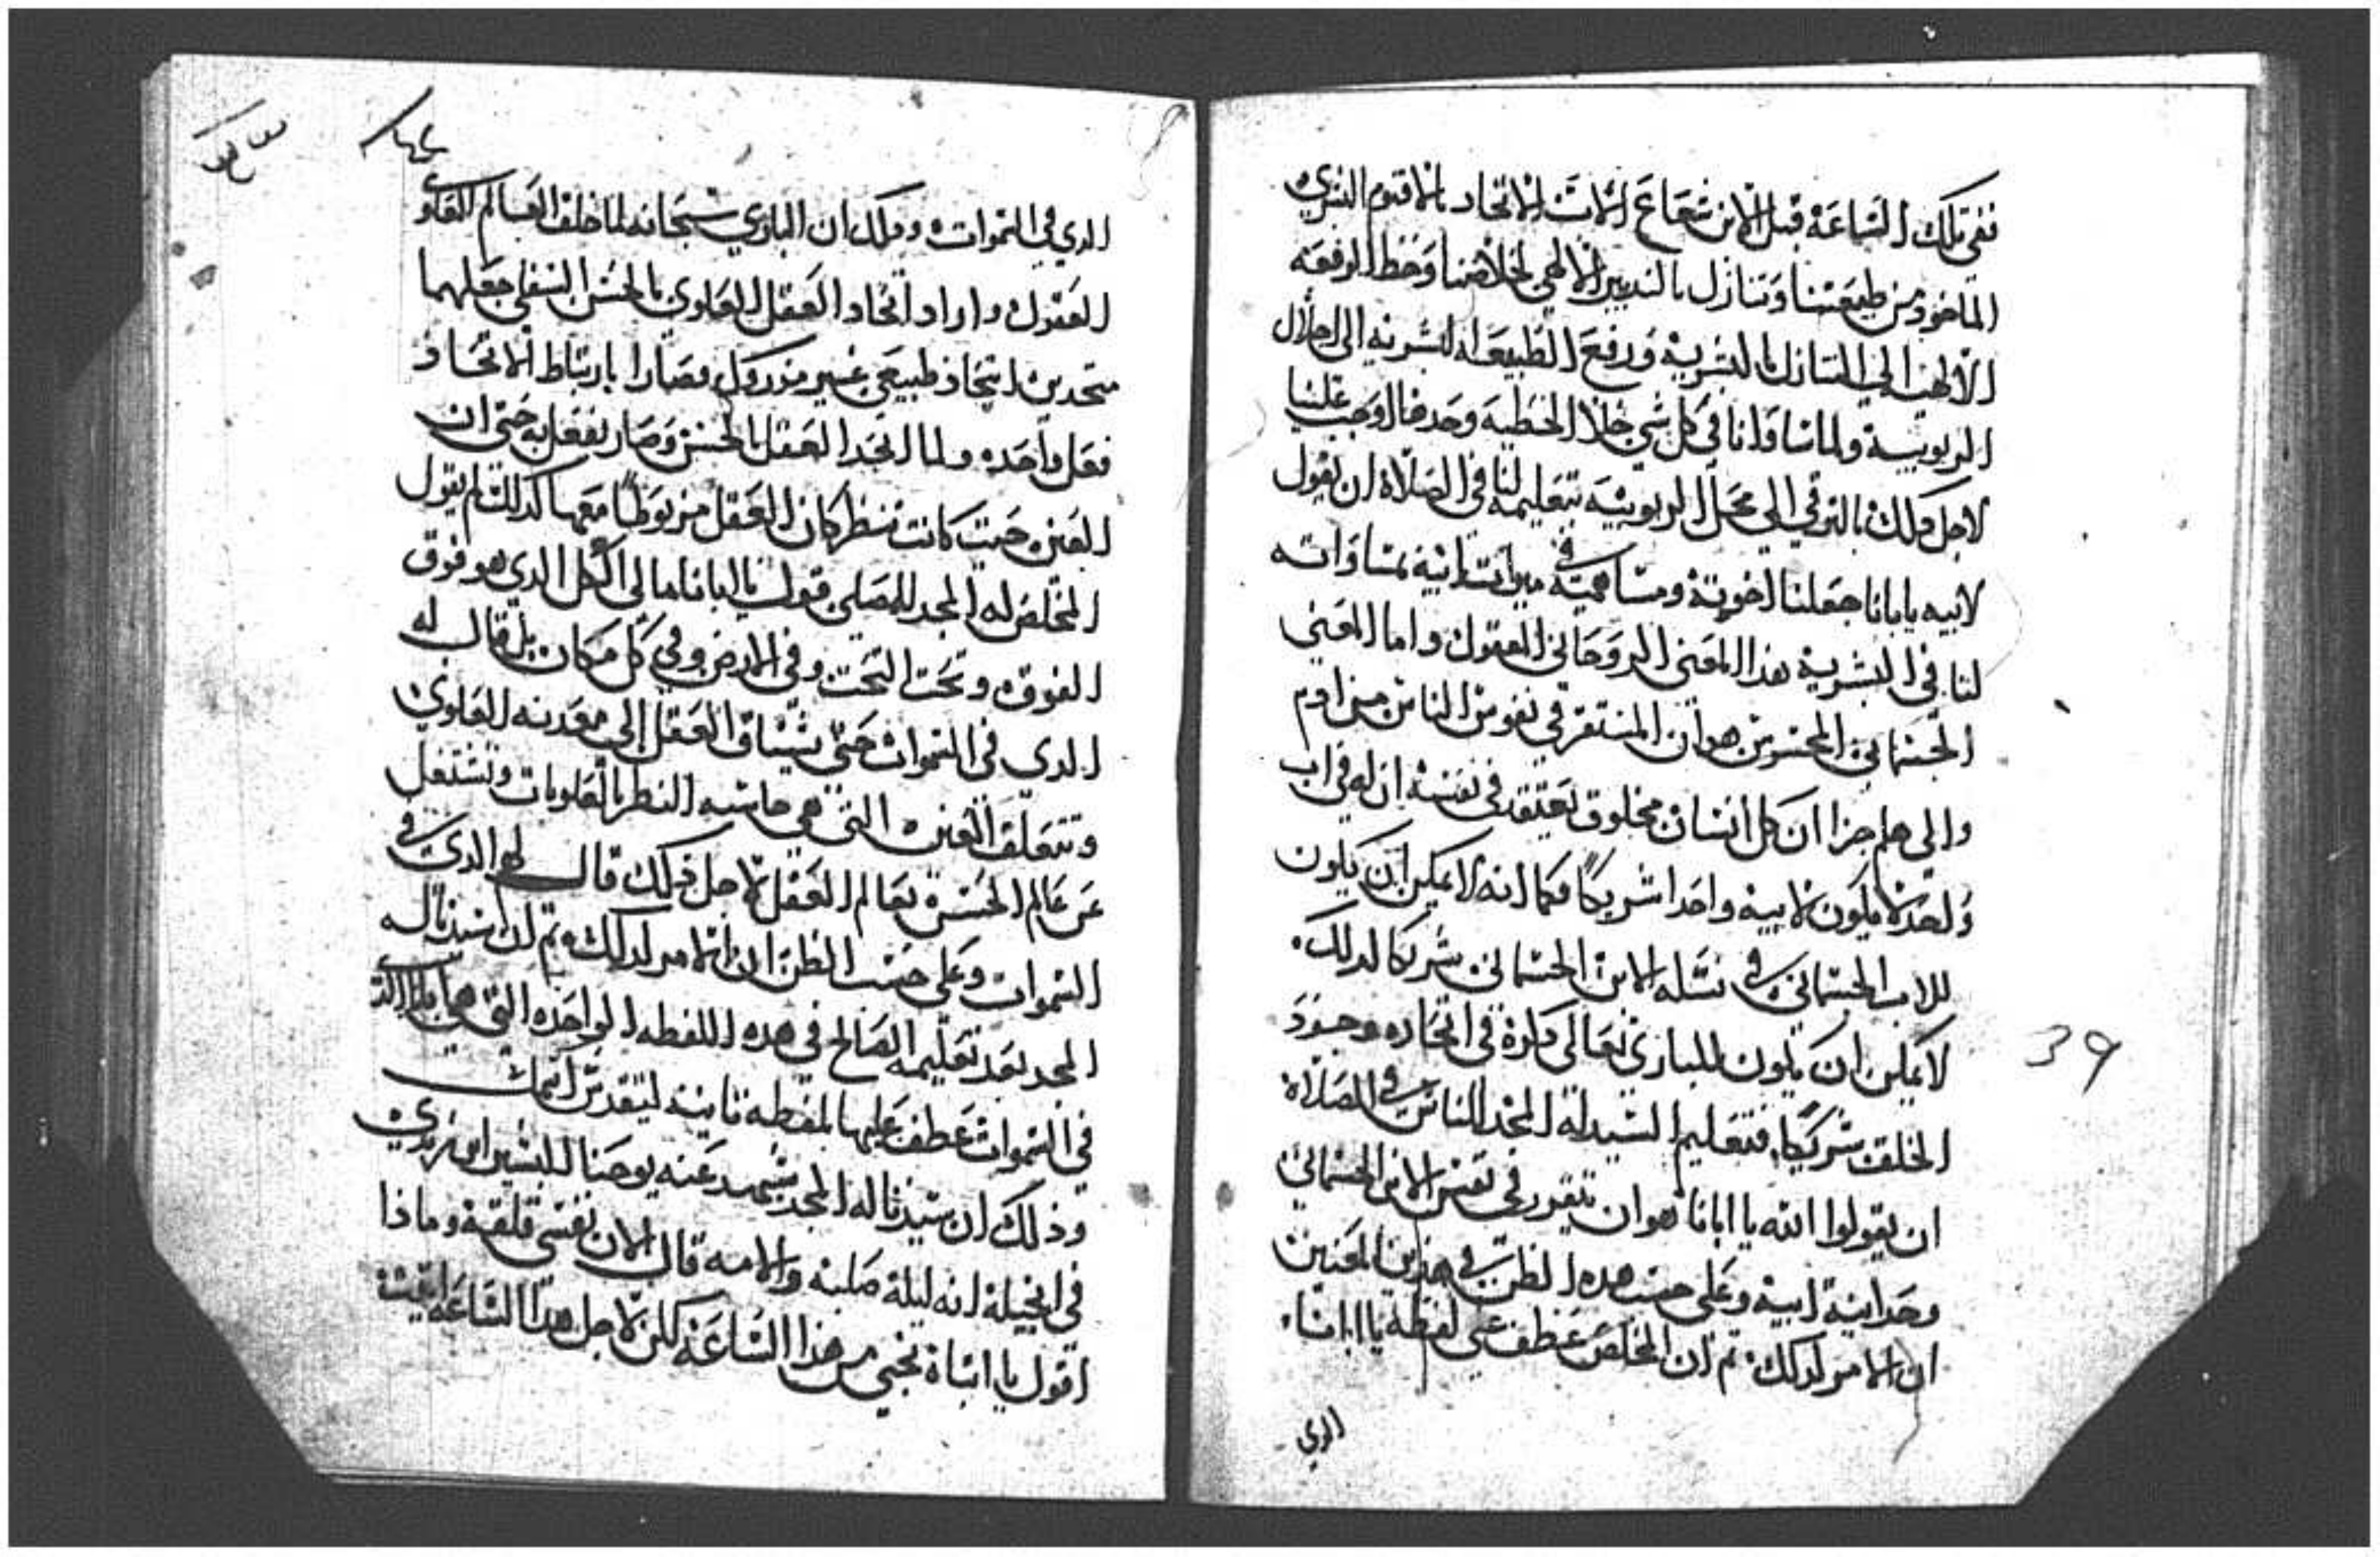 ففي تلك الساعه قبل الابن شعاع الاب الاتحاد بالاقنوم البشري
الماخود من طبيعتنا وتنازل بالتدبير الالاهي لخلاصنا وحط الرفعه
الالهيه الي التنازل بالبشريه ورفع الطبيعه البشريه الي اجلال
الربوبيه ولما ساوانا في كل شي خلا الخطيه وحدها اوجب علينا
لاجل دلك بالترقي الي محل الربوبيه بتعليمه لنا في الصلاه ان نقول
لابيه يابانا جعلنا اخوته ومساهميه في ميراث ابيه بمساواته
لنا في البشريه هدا المعني الروحاني المعقول واما المعني
الجسماني المحسوس هو ان المستقر في نفوس الناس من ادم
والي هلم جرا ان كل انسان مخلوق يعتقد في نفسه ان له في اب
ولحد لا يكون لابيه واحدا شريكا فكما انه لا يمكن ان يكون
للاب الجسماني في نسله الابن الجسماني شريكا لدلك
لا يمكن ان يكون للباري تعالي دكره في اتحاده وجود
الخلقه شريكا فتعليم السيد له المجد للناس في الصلاه
ان يقولوا الله يا ابانا هو ان يتقرر في نفس الابن الجسماني
وحدانية ابيه وعلي حسب هده الظن في هدين المعنيين
ان الامر لدلك تم ان المخلص عطف علي لفظه يا ابانا
الدي
39
الدي في السموات ودلك ان الباري سبحانه لما خلق العالم العلوي
المعقول واراد اتحاد العقل العلوي بالحس السفلي جعلهما
متحدين اتحاد طبيعي غير مدروك فصارا بارتباط الاتحاد
فعل واحده ولما اتحد العقل بالحس وصار يفعل به حتي ان
العين حيت كانت تنظر كان العقل مربوطا معها كدلك لم يقول
المخلص له المجد للمصلي قول يا ابانا مالي الكل الدي هو فوق
الفوق وتحت التحت وفي الارض وفي كل مكان بل قال له
الدي في السموات حتي يشتاق العقل الي معدنه العلوي
وتتعلق العين التي هي حاسه النظر بالعلويات وتشتغل
عن عالم الحس بعالم العقل لاجل دلك قال لهو الدي في
السموات وعلي حسب الظن ان الامر لدلك تم ان سيدنا له
المجد بعد تعليمه الصالح في هده اللفظه الواحده التي هي يابانا الدي
في السموات عطف عليها بلفظه تانيه ليتقدس اسمك
وذلك ان سيدنا له المجد شهد عنه يوحنا البشير ابن زبدي
في انجيله انه ليلة صلبه والامه قال الان نفسي قلقه وماذا
اقول يا ابتاه نجني من هذا الساعه لكن لاجل هدا الساعه اتيت